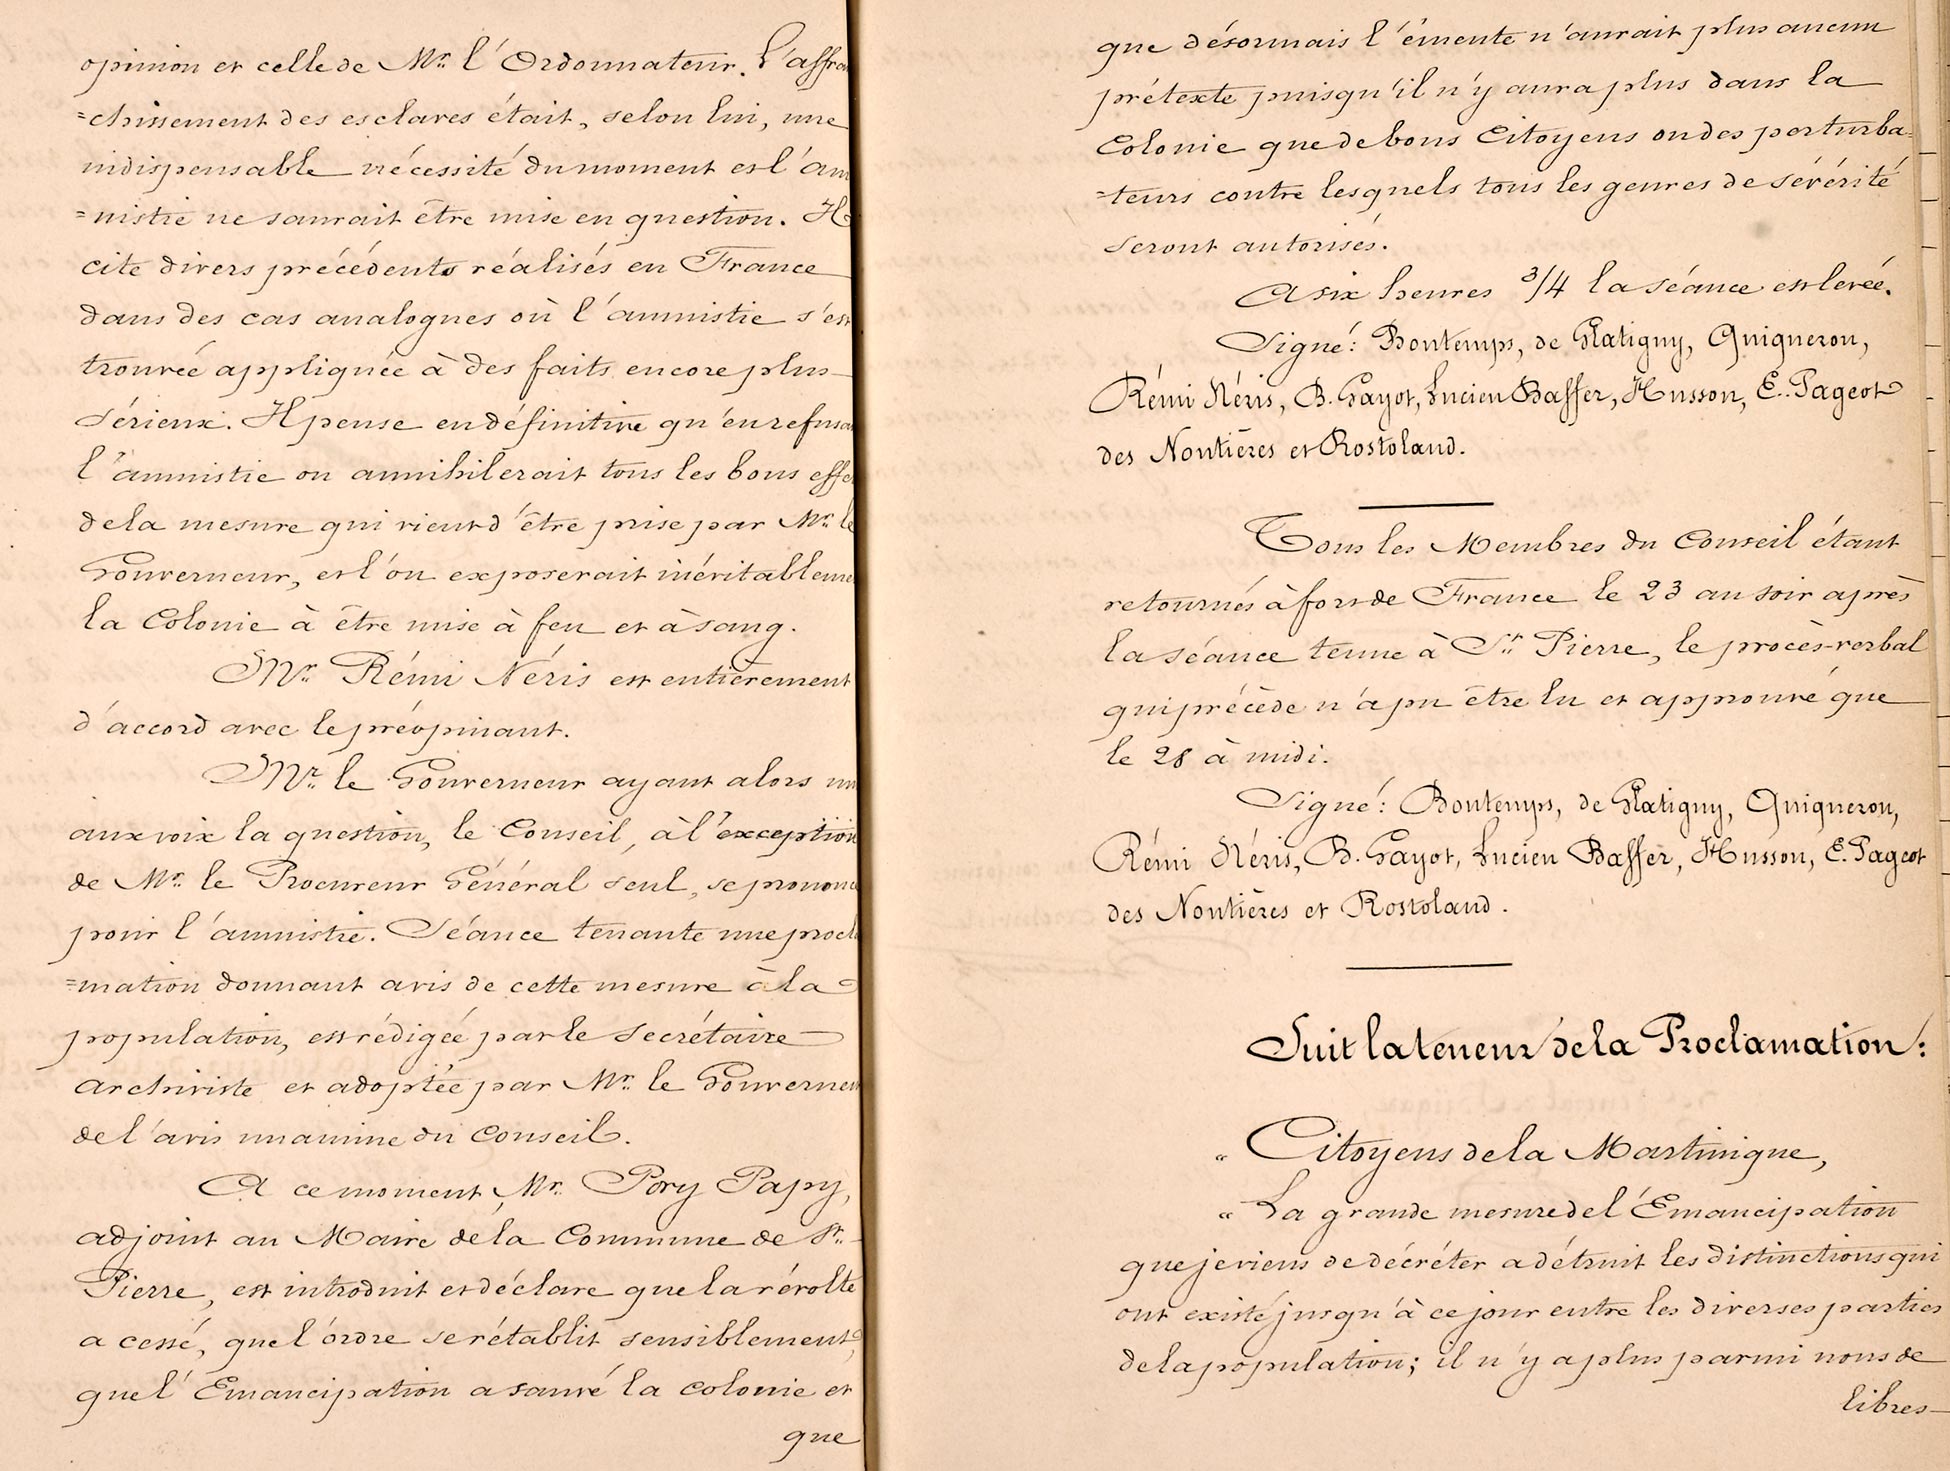 opinion et celle de Mr. l'Ordonnateur. L'affra
=chissement des esclaves était, selon lui, une
indispensable nécessité du moment et l'am
=nistie ne saurait être mise en question. Il
cite divers précédents réalisés en France
dans des cas analogues où l'amnistie s'est
trouvée appliquée à des faits encore plus
sérieux. Il pense en définitive qu'en refusa
l'amnistie on annihilerait tous les bons effe
de la mesure qui vient d'être prise par Mr. le
Gouverneur, et l'on exposerait inévitableme
la Colonie à être mise à feu et à sang.
Mr. Rémi Néris est entièrement
d'accord avec le préopinant.
Mr. le Gouverneur ayant alors mi
aux voix la question, le Conseil, à l'exception
de Mr. le Procureur Général seul, se prononce
pour l'amnistie. Séance tenante une procla
=mation donnant avis de cette mesure à la
population, est rédigée par le Secrétaire
archiviste et adoptée par Mr. le Gouverneur
de l'avis unanime du Conseil.
A ce moment, Mr. Pory Papy,
adjoint au Maire de la Commune de St.
Pierre, est introduit et déclare que la révolte
a cessé, que l'ordre se rétablit sensiblement,
que l'Emancipation a sauvé la colonie et
que
que désormais l'émeute n'aurait plus aucun
prétexte puisqu'il n'y aura plus dans la
Colonie que de bons Citoyens ou des perturba=
=teurs contre lesquels tous les genres de sévérité
seront autorisés.
A six heures 3/4 la séance est levée.
Signé: Bontemps, de Platigny, Quigneron,
Rémi Néris, B. Gayot, Lucien Baffer, Husson, E. Pageot
des Noutières et Rostoland.
Tous les Membres du Conseil étant
retournés à fort de France le 23 au soir après
la séance tenue à St. Pierre, le procès-verbal
qui précède n'a pu être lu et approuvé que
le 28 à midi.
Signé: Bontemps, de Platigny, Quigneron,
Rémi Néris, B. Gayot, Lucien Baffer, Husson, E. Pageot
des Noutières et Rostoland.
Suit la teneur de la Proclamation:
" Citoyens de la Martinique,
" La grande mesure de l'Emancipation
que je viens de décréter a détruit les distinctions qui
ont existé jusqu'à ce jour entre les diverses parties
de la population; il n'y a plus parmi nous de
libres